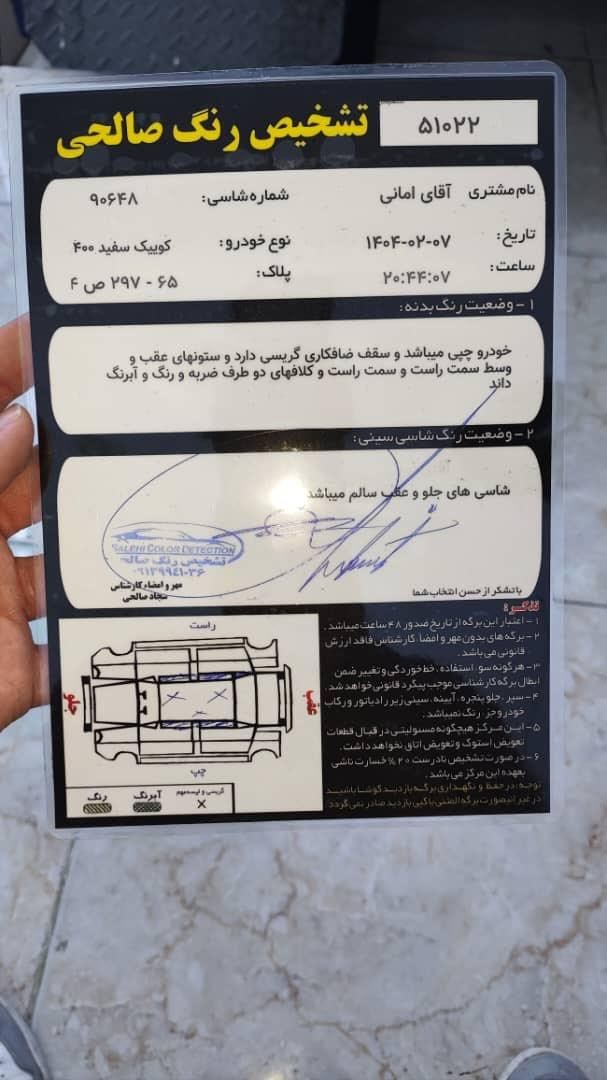 تشخیص رنگ صالحی
۵۱۰۲۲
نام مشتری آقای امانی
شماره شاسی: ۹۰۶۴۸
تاریخ: ۱۴۰۴-۰۲-۰۷
نوع خودرو: کوییک سفید ۴۰۰
ساعت: ۲۰:۴۴:۰۷
پلاک: ۶۵ - ۲۹۷ ص ۴
۱ - وضعیت رنگ بدنه:
خودرو چپی میباشد و سقف ضافکاری گریسی دارد و ستونهای عقب و
وسط سمت راست و سمت راست و کلافهای دو طرف ضربه و رنگ و آبرنگ
داند
۲ - وضعیت رنگ شاسی سینی:
شاسی های جلو و عقب سالم میباشد
SALEHI COLOR DETECTION
تشخیص رنگ صالحی
مهر و امضاء کارشناس
سجاد صالحی
با تشکر از حسن انتخاب شما
تذکر:
۱ - اعتبار این برگه از تاریخ صدور ۴۸ ساعت میباشد.
۲ - برگه های بدون مهر و امضاء کارشناس فاقد ارزش
قانونی می باشد.
۳ - هرگونه سوء استفاده، خط خوردگی و تغییر ضمن
ابطال برگه کارشناسی موجب پیگرد قانونی خواهد شد.
۴ - سپر، جلو پنجره، آیینه، سینی زیر رادیاتور و رکاب
خودرو جزء رنگ نمیباشد.
۵ - این مرکز هیچگونه مسئولیتی در قبال قطعات
تعویض استوک و تعویض اتاق نخواهد داشت.
۶ - در صورت تشخیص نادرست ۲۰٪ خسارت ناشی
بعهده این مرکز می باشد.
توجه: در حفظ و نگهداری برگه بازدید کوشا باشید
در غیر اینصورت برگه المثنی یا کپی بازدید صادر نمی گردد
راست
جلو
عقب
چپ
رنگ
آبرنگ
گریسی و لیسه مهم
X